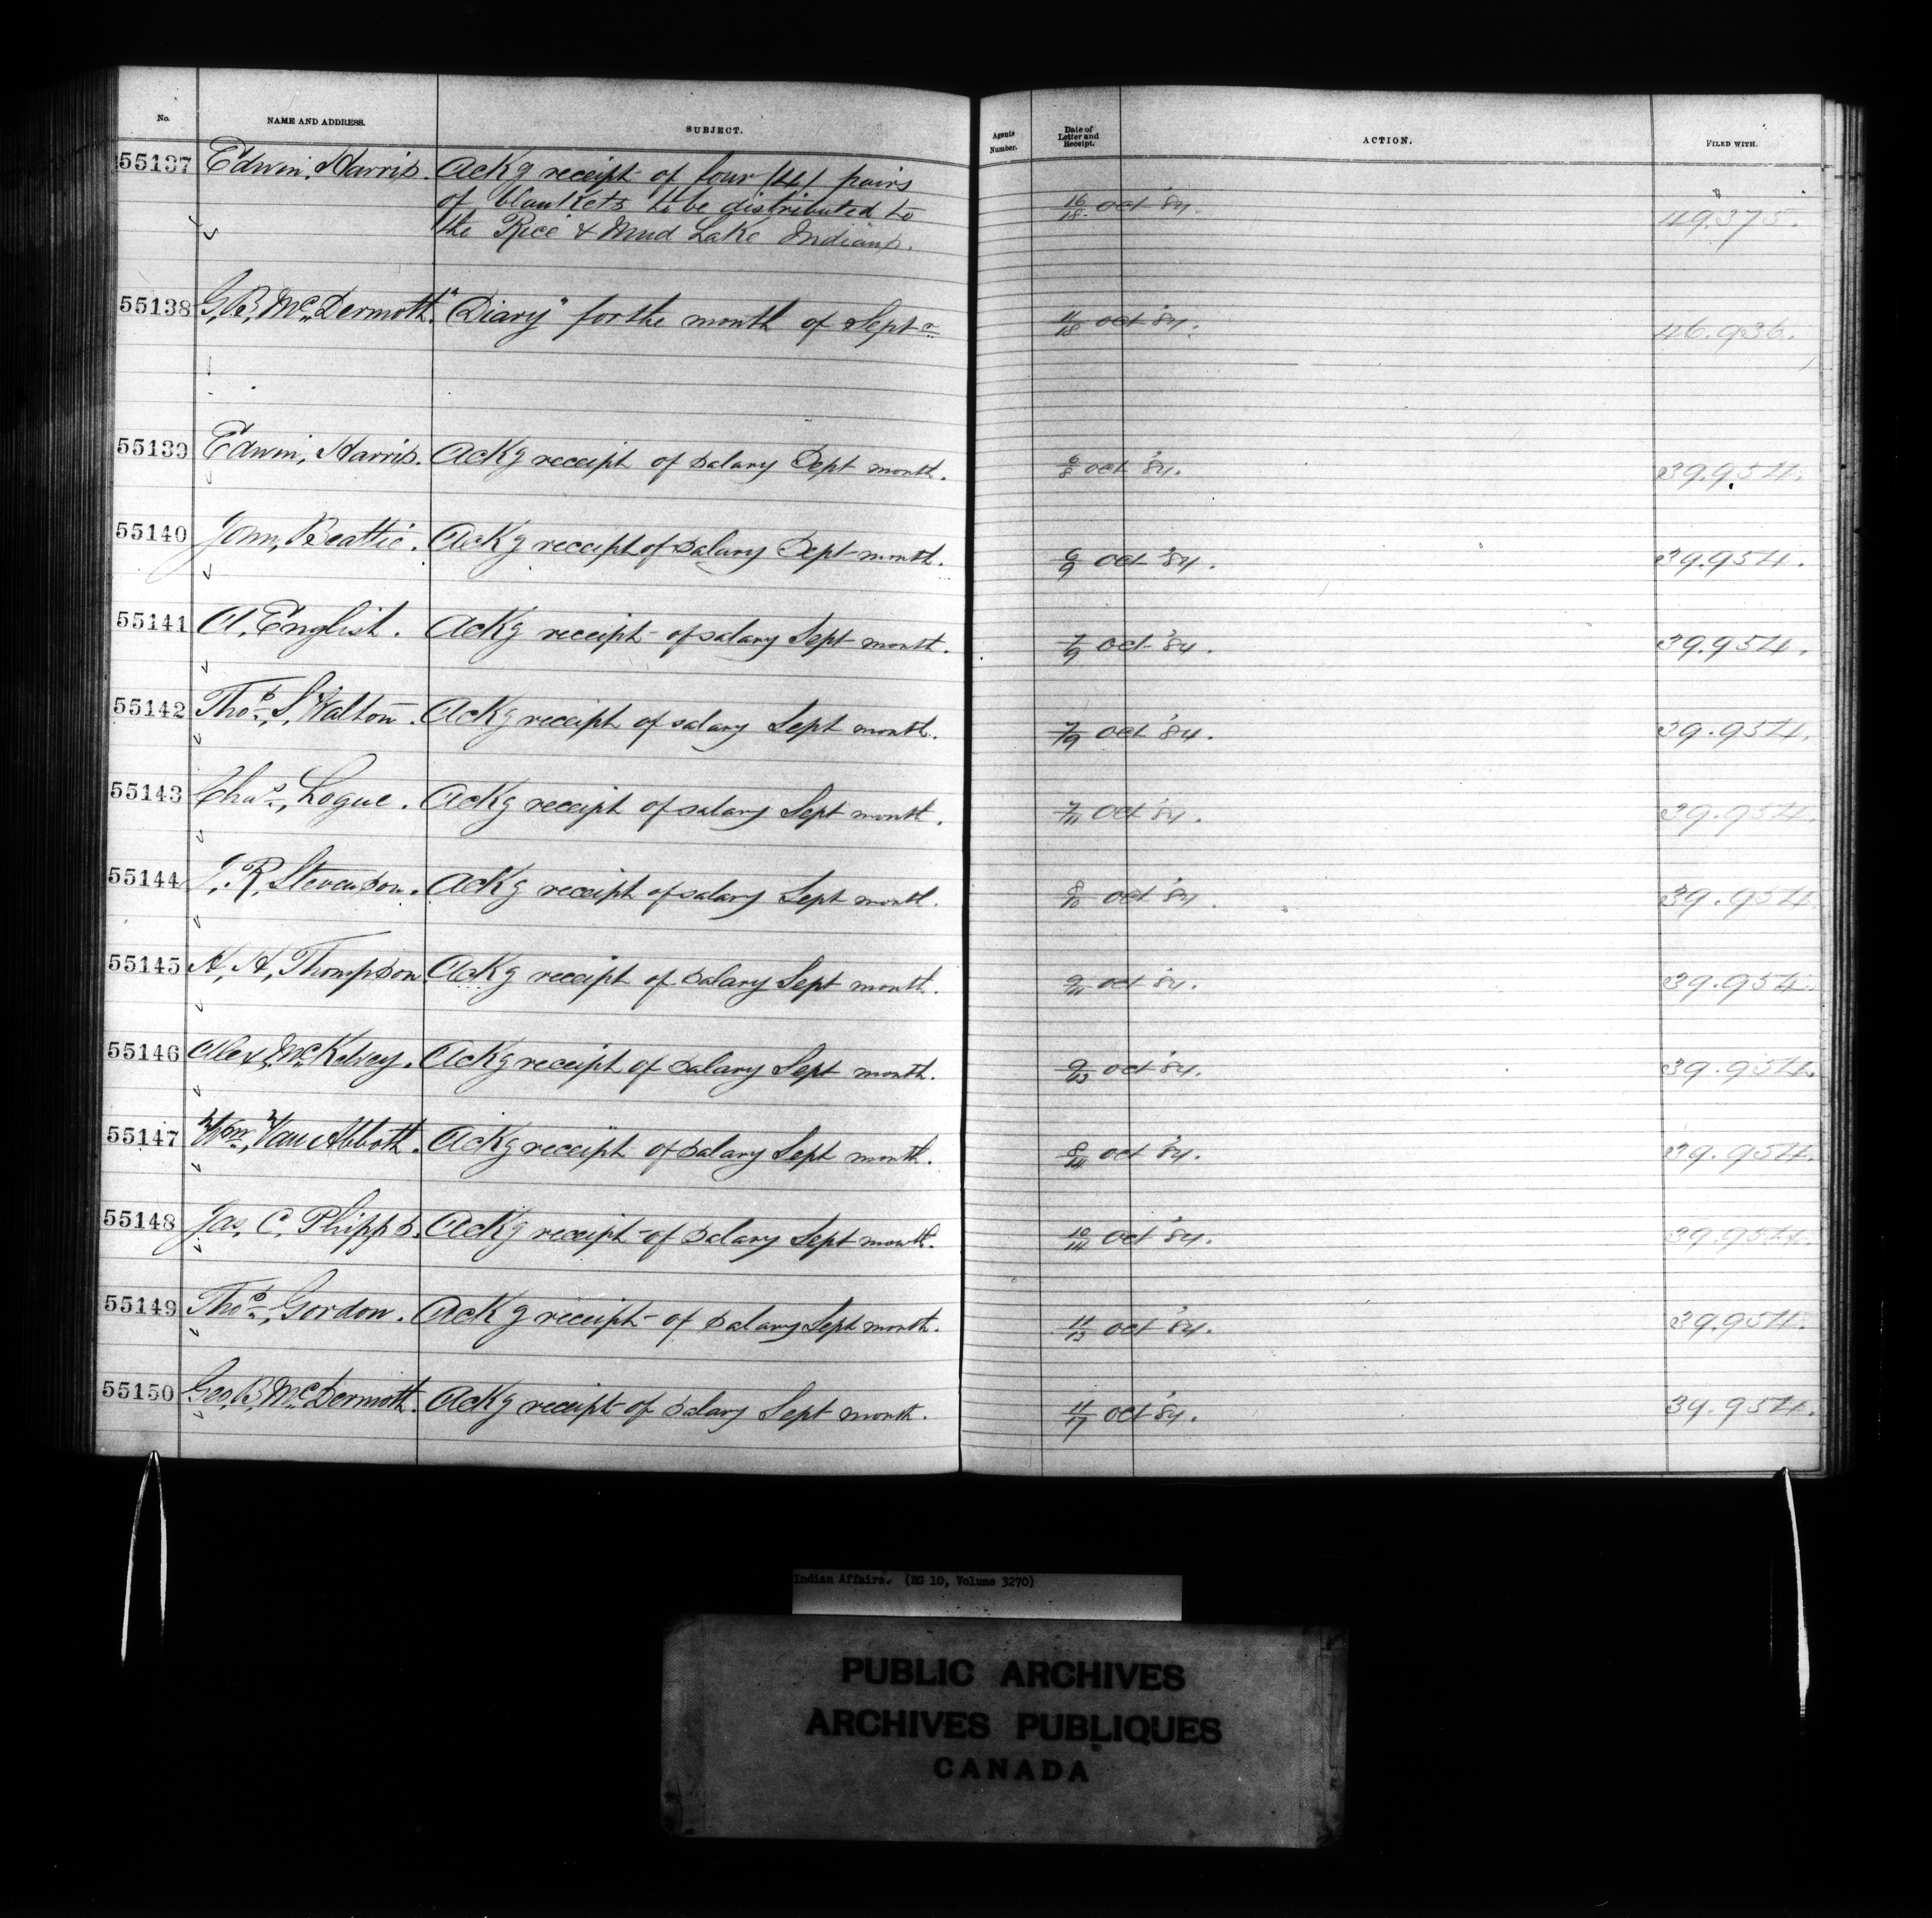 No. NAME AND ADDRESS. SUBJECT. Agents Number. Date of Letter and Receipt. ACTION. FILED WITH.
55137 Edwin, Harris. Ackg receipt of four (4) pairs
of blankets to be distributed to 16/18 Oct '84. 49,375.
the Rice & Mud Lake Indians.
55138 G, B, McDermott. "Diary" for the month of Septr 11/18 Oct '84. 46.936.
55139 Edwin, Harris. Ackg receipt of salary Sept month. 6/8 Oct '84. 39.954.
55140 John, Beattie. Ackg receipt of salary Sept month. 6/9 Oct '84. 39.954.
55141 A, English. Ackg receipt of salary Sept month. 7/9 Oct '84. 39.954.
55142 Thos, S, Walton. Ackg receipt of salary Sept month. 7/9 Oct '84. 39.954.
55143 Chas, Logue. Ackg receipt of salary Sept month. 7/11 Oct '84. 39.954.
55144 J, R, Stevenson. Ackg receipt of salary Sept month. 8/10 Oct '84. 39.954.
55145 H, H, Thompson. Ackg receipt of salary Sept month. 9/11 Oct '84. 39.954.
55146 Alex, McKelvey. Ackg receipt of salary Sept month. 9/13 Oct '84. 39.954.
55147 Wm, Van Abbott. Ackg receipt of salary Sept month. 8/14 Oct '84. 39.954.
55148 Jas, C, Phipps. Ackg receipt of salary Sept month. 10/14 Oct '84. 39.954.
55149 Thos, Gordon. Ackg receipt of salary Sept month. 11/13 Oct '84. 39.954.
55150 Geo, B, McDermott. Ackg receipt of salary Sept month. 11/17 Oct '84. 39.954.
Indian Affairs. (RG 10, Volume 3270)
PUBLIC ARCHIVES
ARCHIVES PUBLIQUES
CANADA